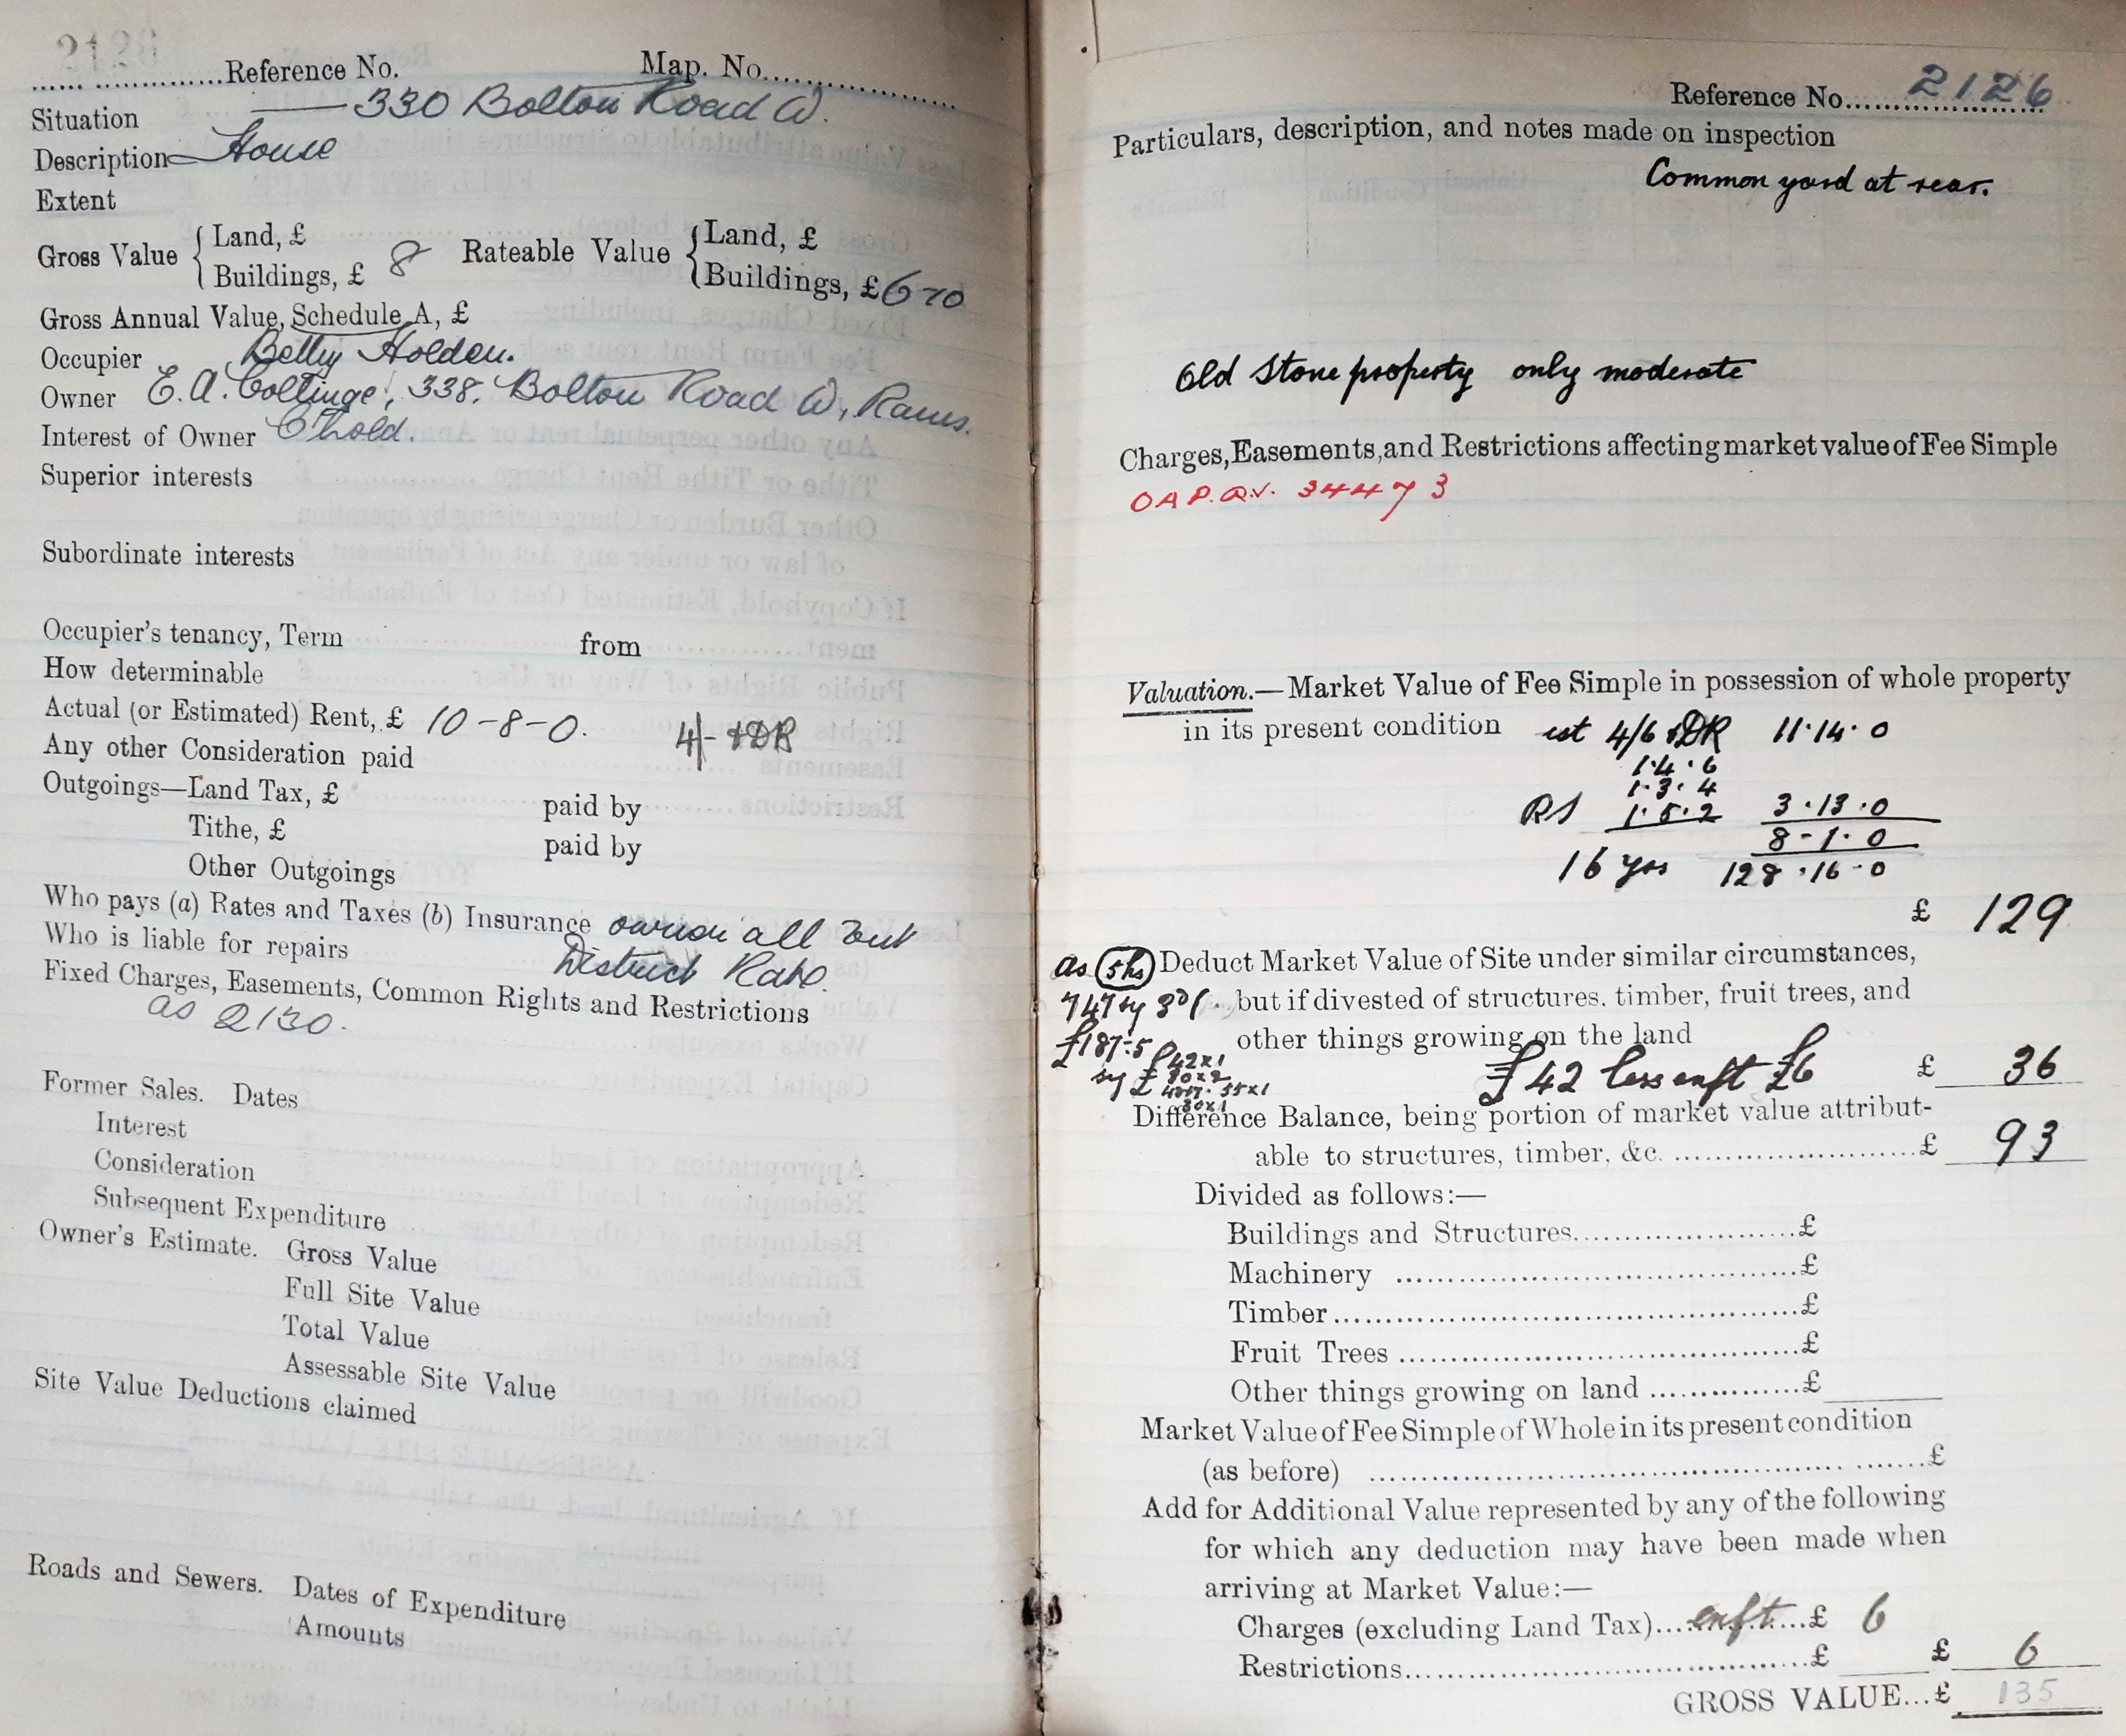 2126
Reference No. Map. No.
Situation 330 Bolton Road W.
Description House
Extent
Gross Value { Land, £ Rateable Value { Land, £
Buildings, £ 8 Buildings, £ 6 " 10
Gross Annual Value, Schedule A, £
Occupier Betty Holden.
Owner E. A. Collinge, 338, Bolton Road W, Rams.
Interest of Owner C'hold.
Superior interests
Subordinate interests
Occupier's tenancy, Term from
How determinable
Actual (or Estimated) Rent, £ 10-8-0. 4/- + DR
Any other Consideration paid
Outgoings—Land Tax, £ paid by
Tithe, £ paid by
Other Outgoings
Who pays (a) Rates and Taxes (b) Insurance owner all but
Who is liable for repairs District Rate.
Fixed Charges, Easements, Common Rights and Restrictions
as 2130.
Former Sales. Dates
Interest
Consideration
Subsequent Expenditure
Owner's Estimate. Gross Value
Full Site Value
Total Value
Assessable Site Value
Site Value Deductions claimed
Roads and Sewers. Dates of Expenditure
Amounts
Reference No. 2126
Particulars, description, and notes made on inspection
Common yard at rear.
Old Stone property only moderate
Charges, Easements, and Restrictions affecting market value of Fee Simple
OAP. Q.V. 34473
Valuation.—Market Value of Fee Simple in possession of whole property
in its present condition est 4/6 + DR 11·14·0
1·4·6
1·3·4
RS 1·5·2 3·13·0
8-1·0
16 yrs 128·16-0
£ 129
as 5hs Deduct Market Value of Site under similar circumstances,
747 sy 3d/ but if divested of structures. timber, fruit trees, and
£187:5 other things growing on the land
£42x1 £42 less enft £6 £ 36
Difference Balance, being portion of market value attribut-
able to structures, timber, &c. £ 93
Divided as follows:—
Buildings and Structures £
Machinery £
Timber £
Fruit Trees £
Other things growing on land £
Market Value of Fee Simple of Whole in its present condition
(as before) £
Add for Additional Value represented by any of the following
for which any deduction may have been made when
arriving at Market Value:—
Charges (excluding Land Tax) enft. £ 6
Restrictions £ £ 6
GROSS VALUE... £ 135